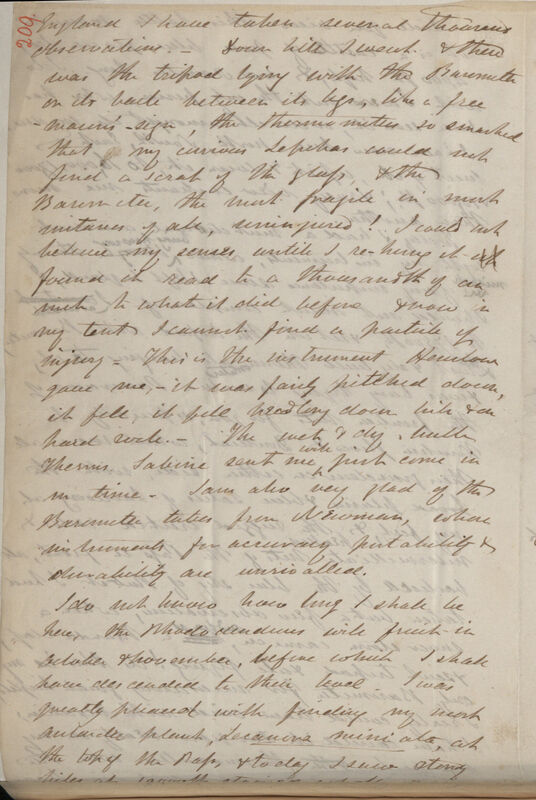 200
England I have taken several thousand
observations — Down hill I went & there
was the tripod lying with the Barometer
on its back between its legs, like a free
-mason's-sign, the thermometer so smashed
that my curious Lepchas could not
find a scrap of the glass & the
Barometer, the most fragile in most
instances of all, uninjured! I could not
believe my senses until I re-hung it &
found it read to a thousandth of an
inch to what it did before & now in
my tent I cannot find a particle of
injury — This is the instrument Henslow
gave me, — it was fairly pitched down,
it fell, it fell headlong down hill & on
hard rock. — The wet & dry bulb
Therms. Sabine sent me, with just come in
in time — I am also very glad of the
Barometer tubes from Newman, whose
instruments for accuracy portability &
durability are unrivalled.
I do not know how long I shall be
here, the Rhododendrons will fruit in
October & November, before which I shall
have descended to their level I was
greatly pleased with finding my most
antarctic plant, Lecanora miniata, at
the top of the Pass, & to day I saw stony
hills at